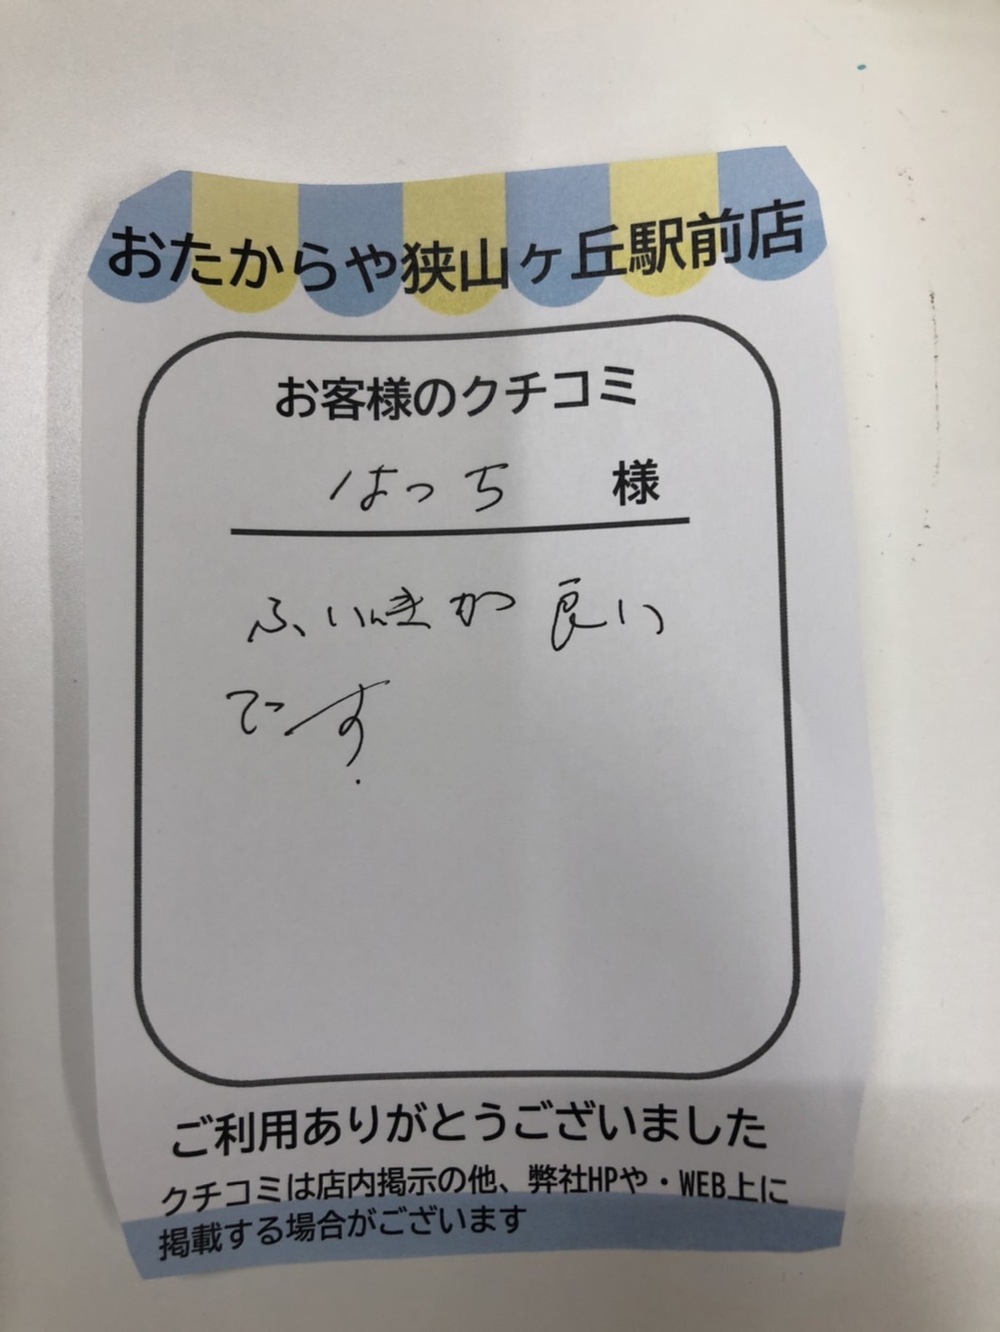 おたからや狭山ヶ丘駅前店
お客様のクチコミ
はっち 様
ふいんきが良い
です.
ご利用ありがとうございました
クチコミは店内掲示の他、弊社HPや・WEB上に
掲載する場合がございます